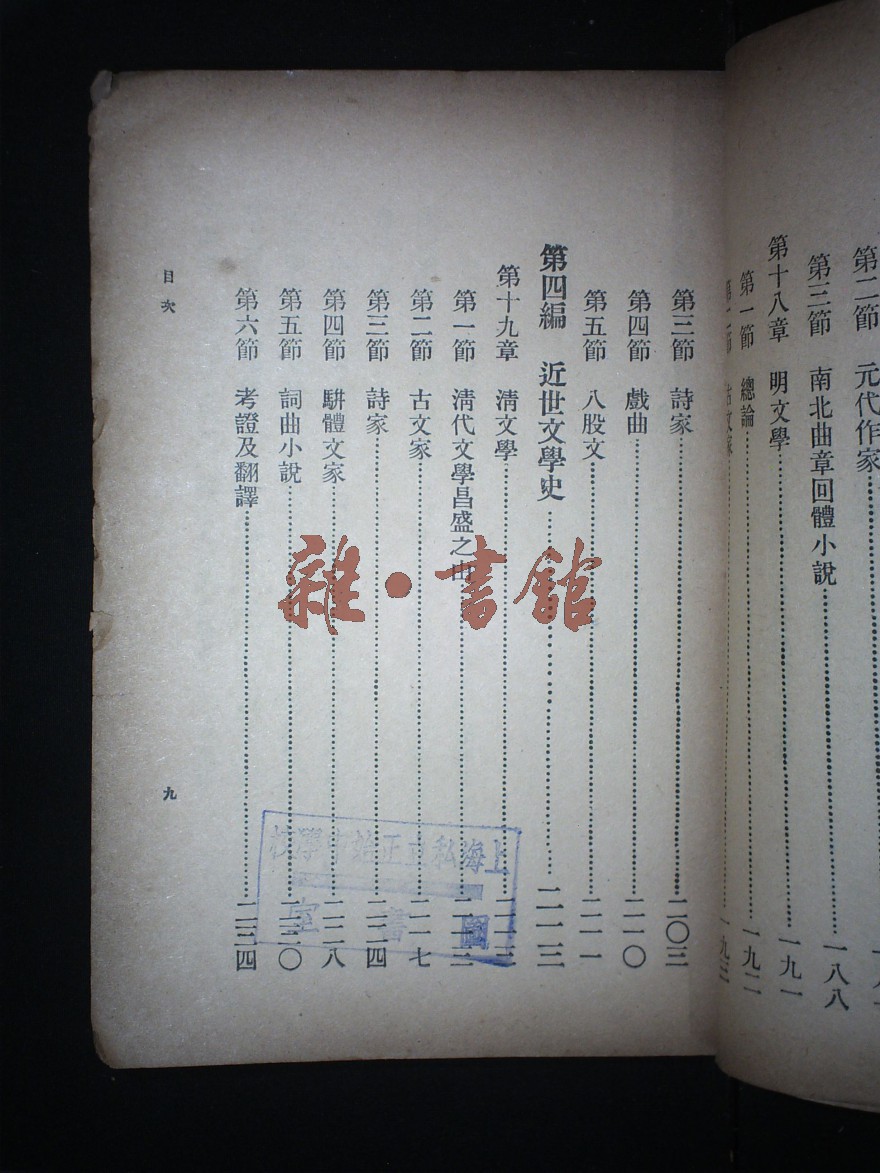 第二節 元代作家
第三節 南北曲章回體小說 一八八
第十八章 明文學 一九一
第一節 總論 一九二
古文家 一九三
第三節 詩家 二〇三
第四節 戲曲 二一〇
第五節 八股文 二一一
第四編 近世文學史 二一三
第十九章 清文學 二一三
第一節 清代文學昌盛之由 二一三
第二節 古文家 二一七
第三節 詩家 二二四
第四節 駢體文家 二二八
第五節 詞曲小說 二三〇
第六節 考證及翻譯 二三四
目次
九
雜·書館
上海私立正始中學校
圖書室